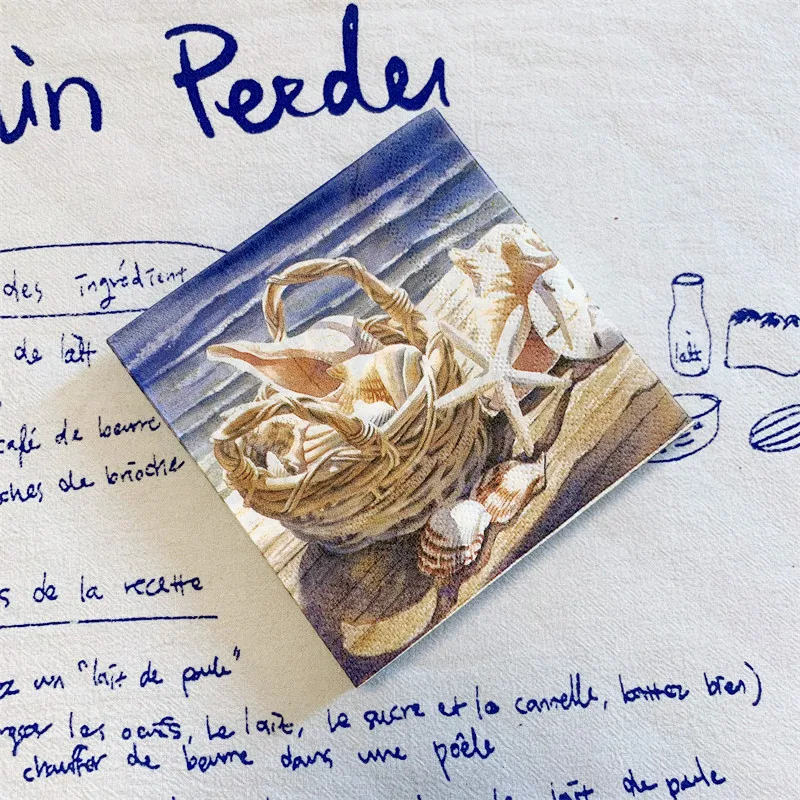 in Perdu
des ingrédient
de lait
lait
café de beurre
ches de brioche
s de la recette
z un "lait de poule"
les oeufs, le lait, le sucre et la cannelle, battez bien)
chauffer de beurre dans une poêle
lait de poule